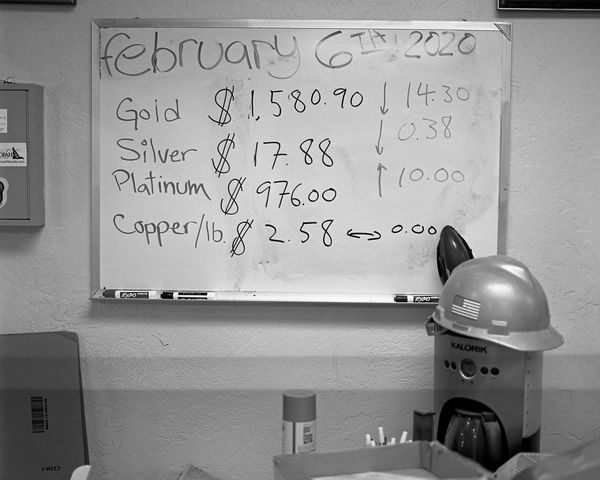 february 6TH! 2020
Gold $ 1,580.90 ↓ 14.30
Silver $ 17.88 ↓ 0.38
Platinum $ 976.00 ↑ 10.00
Copper/lb. $ 2.58 ↔ 0.00
EXPO
EXPO
KALORIK